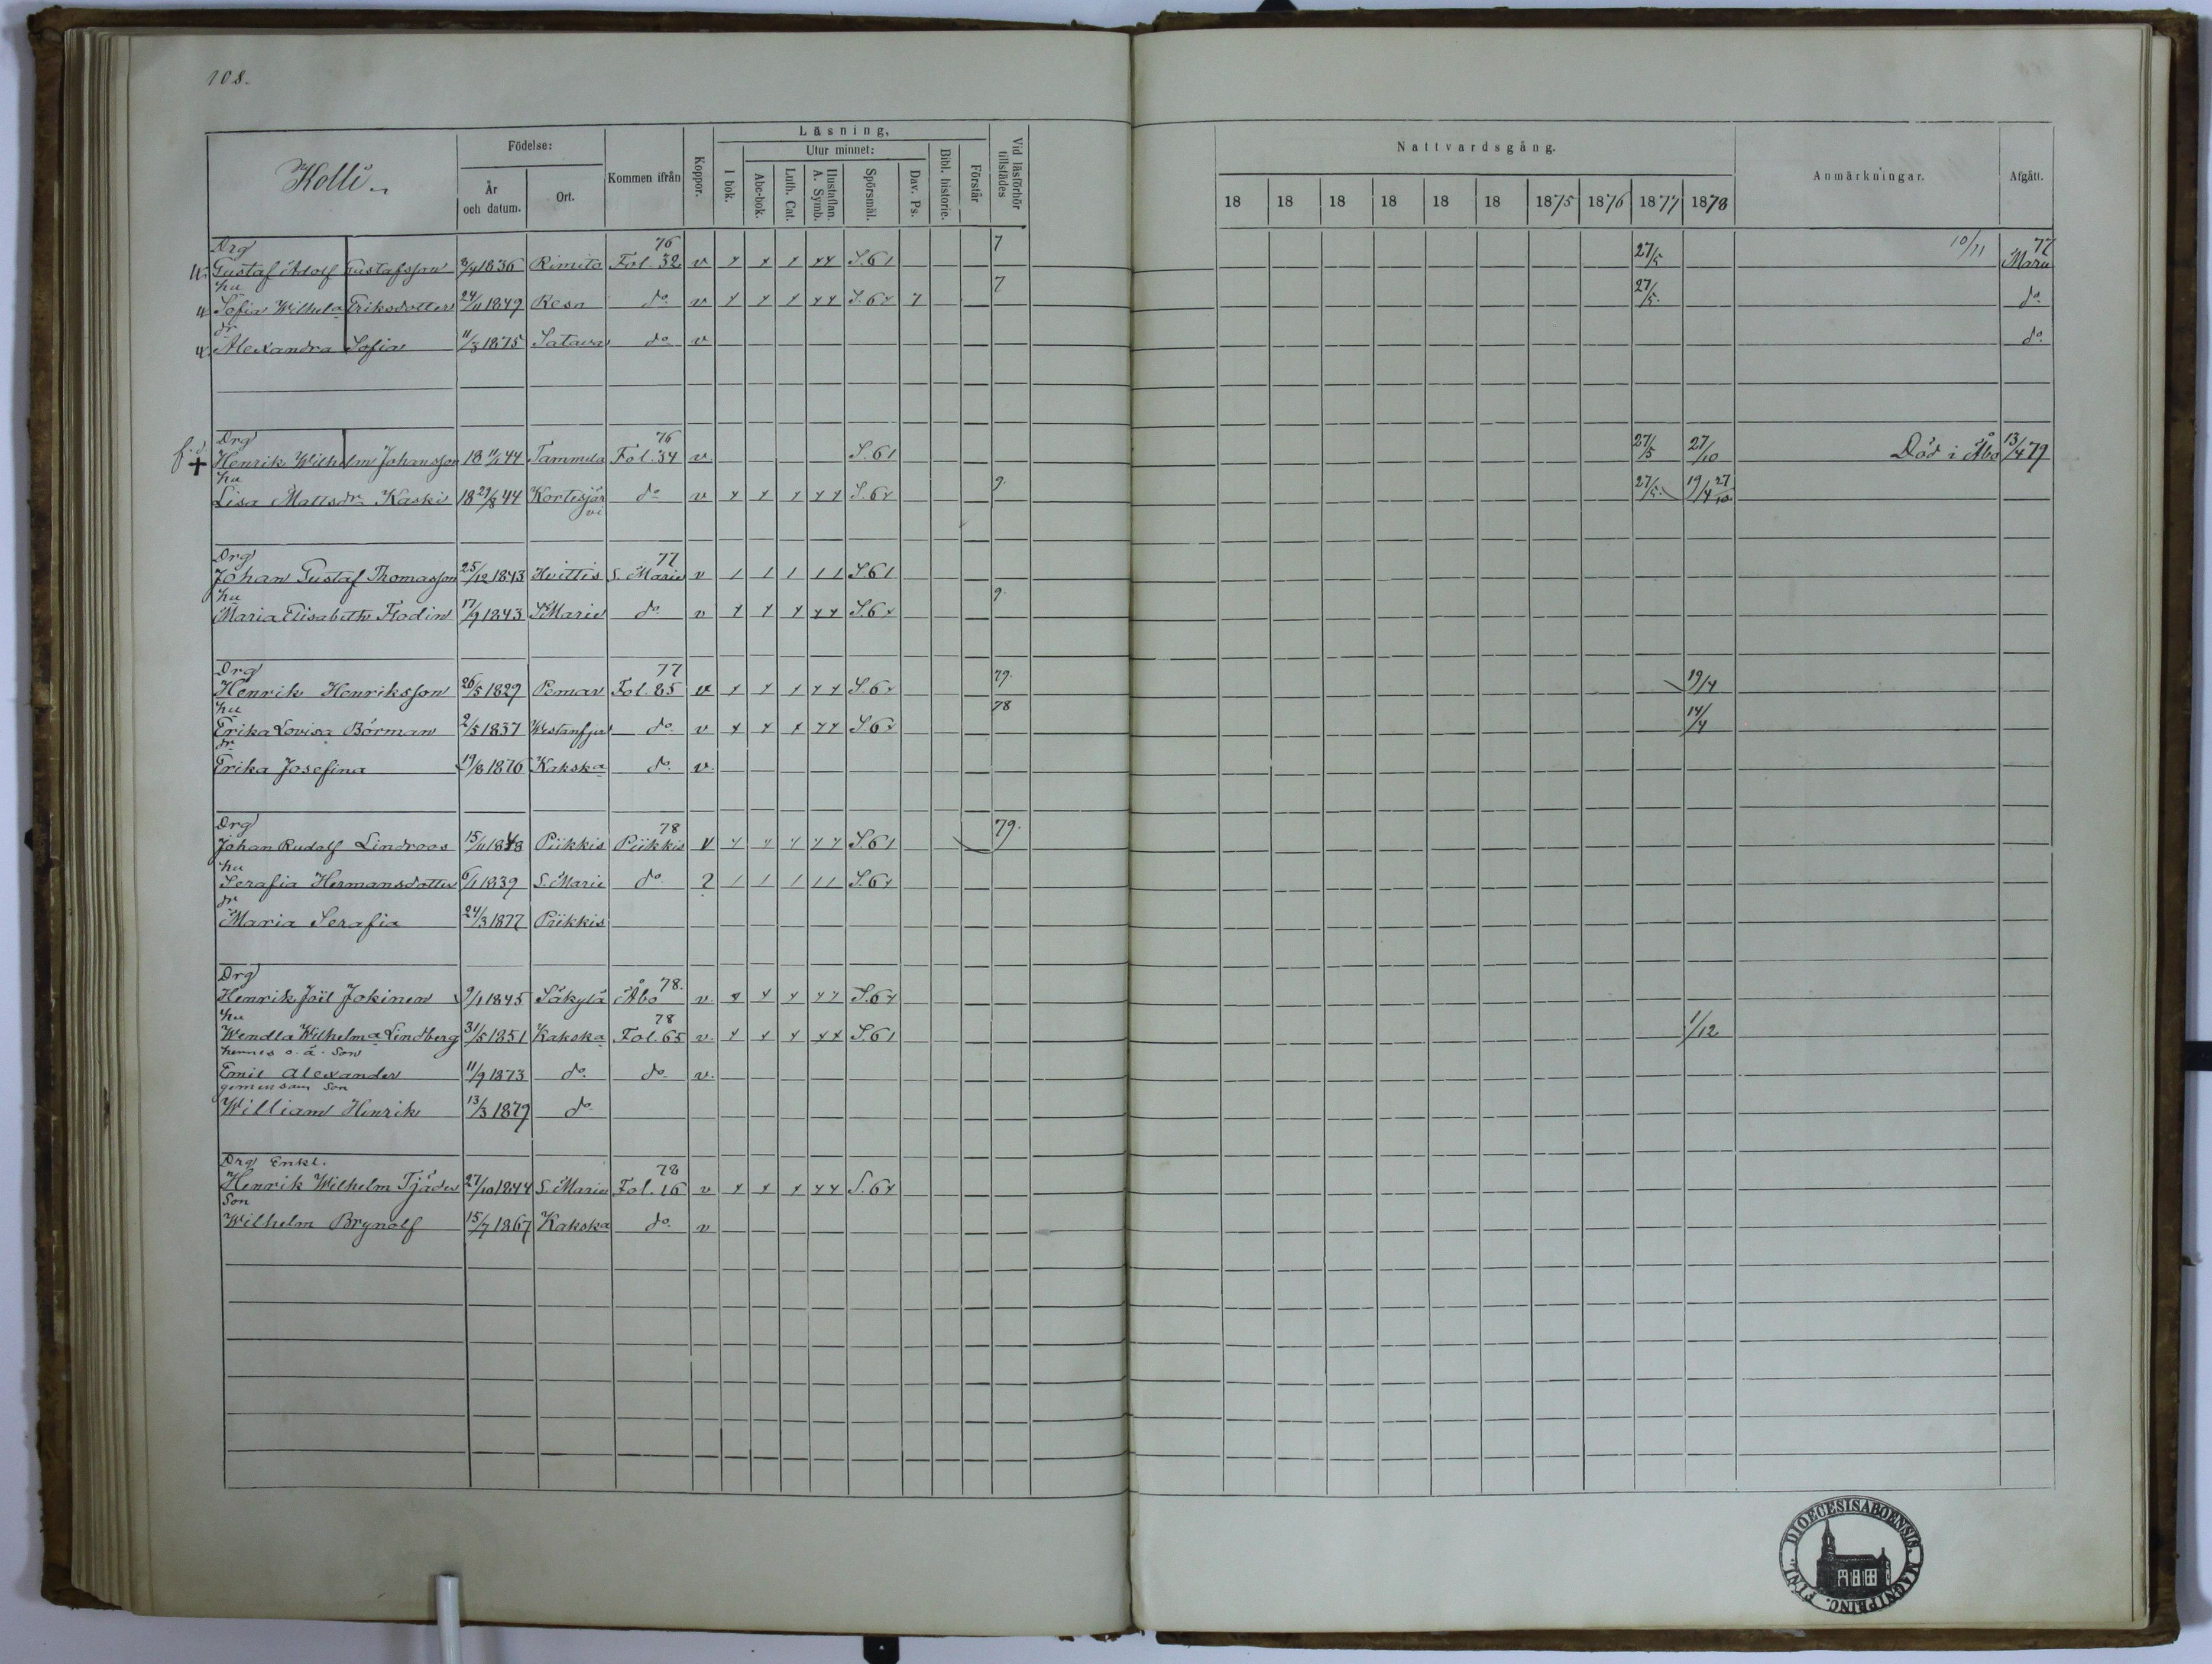 108.
Kolli
Födelse:
År och datum.
Ort.
Kommen ifrån
Koppor.
Läsning,
I bok.
Utur minnet:
Abc-bok.
Luth. Cat.
Hustaflan. A. Symb.
Spörsmål.
Dav. Ps.
Bibl. historie.
Förstår
Vid läsförhör tillstädes
Nattvardsgång.
18 18 18 18 18 18 1875 1876 1877 1878
Anmärkningar.
Afgått.
Drg 76 7 77
Gustaf Adolf Gustafsson 1836 Rimito Fol. 32 v S.61 27/5 10/11 Marie
hu 7
Sofia Wilhela Eriksdotter 24/11 1849 Reso do v S.6 27/5 do
dr
Alexandra Sofia 11/3 1875 Satava do v do
Drg 76
Henrik Wilhelm Johansson 18 11/1 44 Tammela Fol. 34 v S.61 27/5 27/10 Död i Åbo 13/4 79
hu 9.
Lisa Mattsdr Kaski 18 29/8 44 Kortesjärvi do v S.6 27/5 19/4 27/10
Drg 77
Johan Gustaf Thomasson 25/12 1843 Hvittis S. Marie v 1 1 1 11 S.61
hu 9.
Maria Elisabeth Flodin 17/9 1843 S Marie do v S.6
Drg 77 79.
Henrik Henriksson 26/5 1829 Pemar Fol. 85 v S.6 19/4
hu 78
Erika Lovisa Börman 2/5 1837 Westanfjer do v S.6 14/4
dr
Erika Josefina 19/8 1876 Kakska do v.
Drg 78 79.
Johan Rudolf Lindroos 15/11 1848 Piikkis Piikkis v S.61
hu
Serafia Hermansdotter 6/1 1839 S. Marie do ? 1 1 1 11 S.6
dr
Maria Serafia 24/3 1877 Piikkis
Drg 78.
Henrik Joël Jokinen 9/1 1845 Säkylä Åbo v. S.6
hu 78
Wendla Wilhelma Lindberg 31/5 1851 Kakska Fol. 65 v. S.61 1/12
hennes o. ä. Son
Emil Alexander 11/9 1873 do do v.
gemensam Son
William Henrik 13/3 1879 do
Drg Enkl. 78
Henrik Wilhelm Tjäder 27/10 1844 S. Marie Fol. 16 v S.6
Son
Wilhelm Brynolf 15/7 1867 Kakska do v
DIOECESISABOENSIS. MAGNI PRINC. FINL.